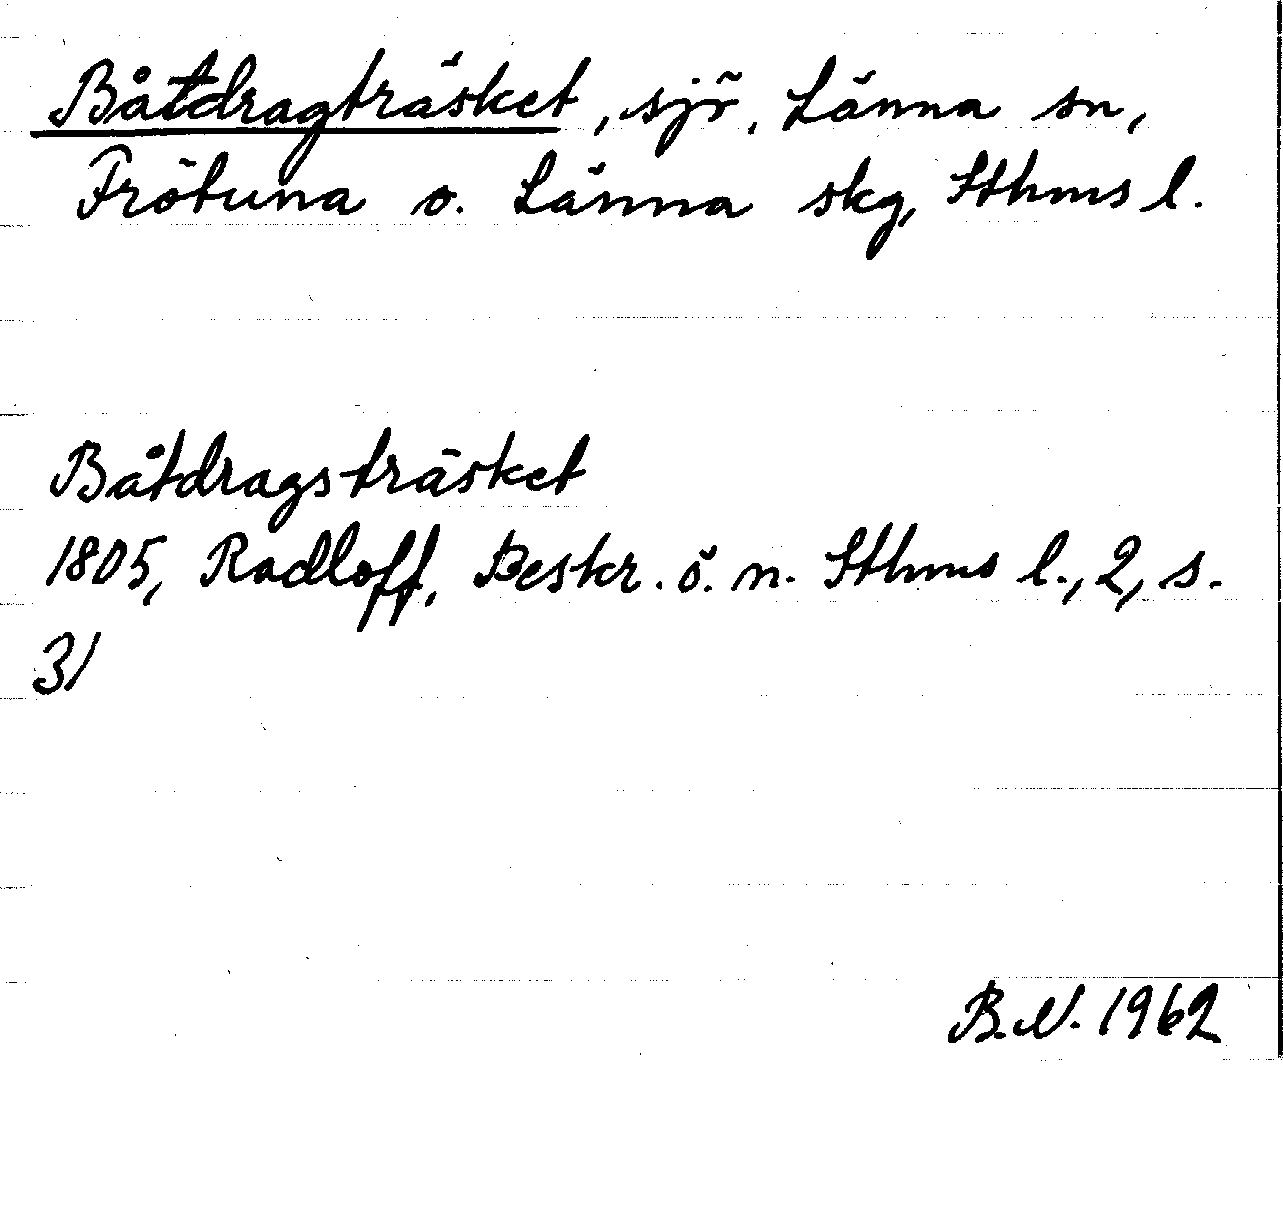 Båtdragträsket, sjö, Länna sn,
Frötuna o. Länna skg, Sthms l.
Båtdragsträsket
1805, Radloff, Beskr. ö. n. Sthms l., 2, s.
31
B.N. 1962